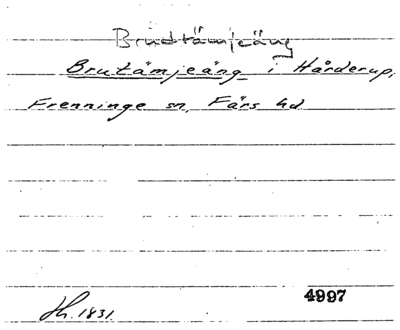 Brudtämjeäng
Brutämjeäng i Hårderup,
Frenninge sn, Färs hd
4997
Jh. 1831.